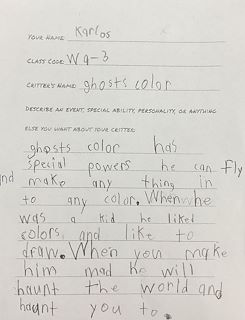 YOUR NAME: Karlos
CLASS CODE: Wa-3
CRITTER'S NAME: ghosts color
DESCRIBE AN EVENT, SPECIAL ABILITY, PERSONALITY, OR ANYTHING
ELSE YOU WANT ABOUT YOUR CRITTER:
ghosts color has
special powers he can fly
nd make any thing in
to any color. When he
was a kid he liked
colors, and like to
draw. When you make
him mad he will
haunt the world and
haunt you to.